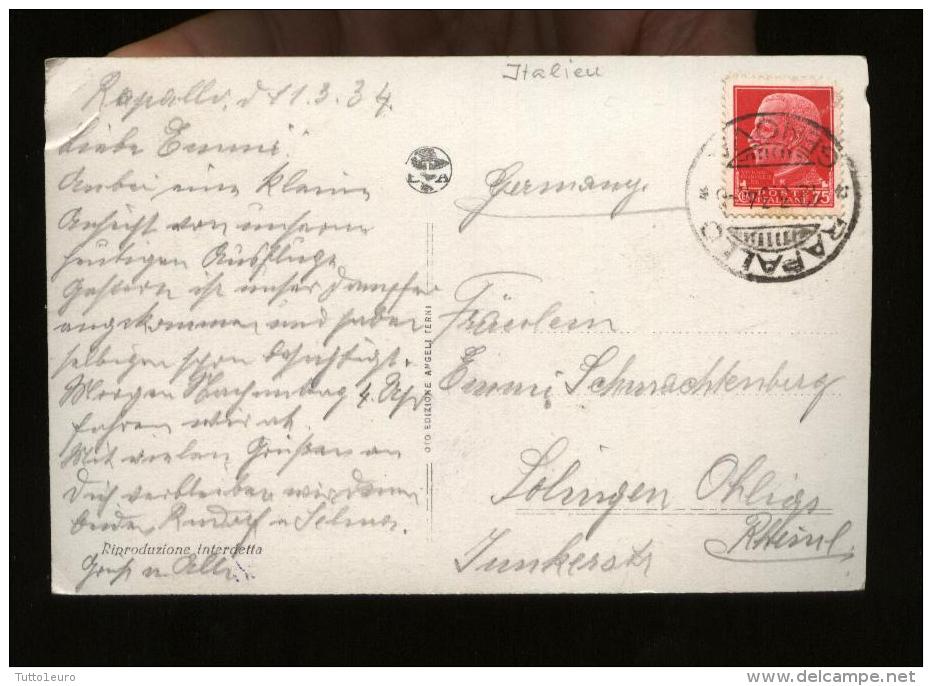 Italien
Rapallo, d 11.3.34.
Liebe Emmi!
eine kleine
Ansicht von unserm
heutigen Ausfluge
Gestern ist unser Dampfer
angekommen und haben
selbigen schon besichtigt.
Morgen Nachmittag 4 Uhr
fahren wir ab.
Mit vielen Grüßen an
Dich verbleiben wir Deine
Rudolf u Selma.
Riproduzione interdetta
Gruß u Alle
L A
OTO EDIZIONE ANGELI TERNI
Germany
Fräulein
Emmi Schmachtenberg
Solingen Ohligs
Rheinl.
Junkerstr
POSTE
ITALIANE 75
RAPALLO
GENOVA
Tutto1euro
www.delcampe.net